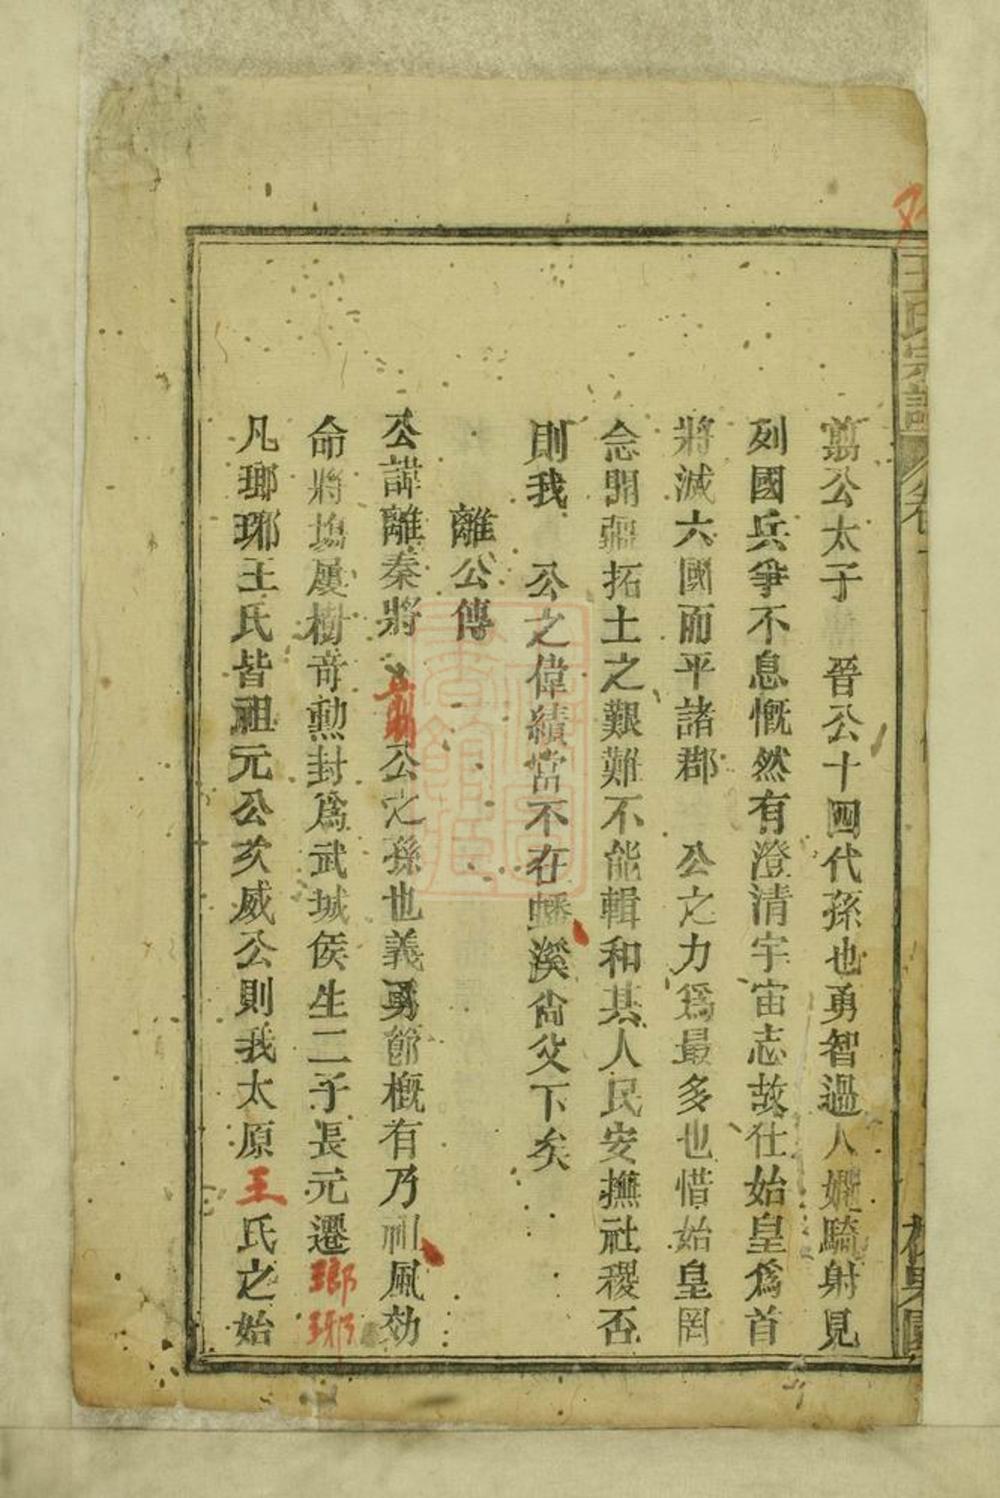 王氏宗譜
翦公太子　晉公十四代孫也勇智過人嫻騎射見
列國兵爭不息慨然有澄清宇宙志故仕始皇爲首
將滅六國而平諸郡　公之力爲最多也惜始皇罔
念開疆拓土之艱難不能輯和其人民安撫社稷否
則我　公之偉績當不在蟠溪尙父下矣
離公傳
公諱離秦將翦公之孫也義勇節槪有乃祖風効
命將塲屢樹竒勲封爲武城侯生二子長元遷瑯琊
凡瑯琊王氏皆祖元公次威公則我太原王氏之始